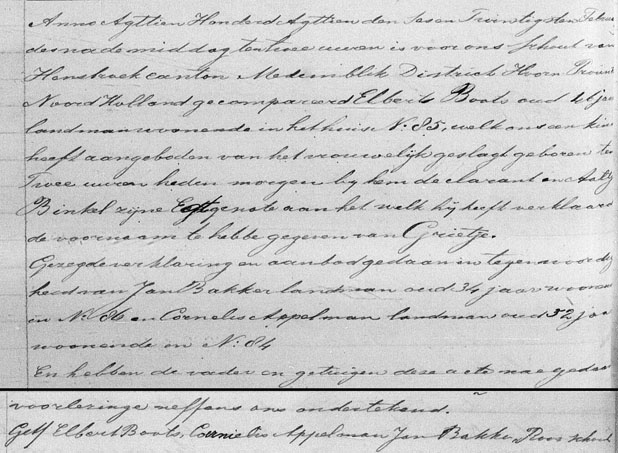 Anno Agttien Honderd Agttien den Sesen Twintigsten Febru
des na de middag ten twee uuren is voor ons Schout van
Hensbroek canton Medemblik District Hoorn Provin
Noord Holland gecompareerd Elbert Boots oud 41 jaa
landman woonende in het huis N:85, welk ons een kin
heeft aangeboden van het vrouwelijk geslagt geboren ten
Twee uuren heden morgen by hem declarant en Aaltj
Binkel zijne Egtgenote aan het welk hij heeft verklaard
de voornaam te hebbe gegeven van Grietje.
Gezegde verklaring en aanbod gedaan in tegenwoordig
heid van Jan Bakker landman oud 34 jaar woonen
in N:86 en Cornelis Appelman landman oud 52 jaa
woonende in N:84
En hebben de vader en getuigen deze acte nae gedane
voorlezinge neffens ons ondertekend.
Get Elbert Boots, Cornelis Appelman Jan Bakke Roos schout